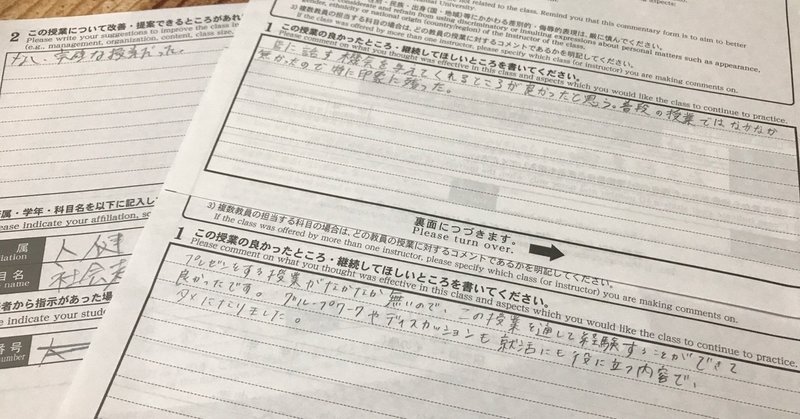 2 この授業について改善・提案できるところがあれ
Please write your suggestions to improve the class in
(e.g., management, organization, content, class size,
ない。完璧な授業だった
属・学年・科目名を以下に記入し
ease indicate your affiliation, sc
属
iation
人健
目名
name
社会
者から指示があった場
indicate your stude
番号
number
not related to the class. Remind you that this commentary form is to aim to better
民族・出身(国・地域)等にかかわる差別的・侮辱的表現は、厳に慎んでください。
using discriminatory or insulting expressions about personal matters such as appearance,
gender, ethnicity or national origin (country/region) of the instructor of the class.
3) 複数教員の担当する科目の場合は、どの教員の授業に対するコメントであるかを明記してください。
If the class was offered by more than one instructor, please specify which class (or instructor) you are making comments on.
1 この授業の良かったところ・継続してほしいところを書いてください。
Please comment on what you thought was effective in this class and aspects which you would like the class to continue to practice.
に話す機会を与えてくれるところが良かったと思う。普段の授業ではなかなか
無かったので特に印象に残った。
裏面につづきます。
Please turn over.
3) 複数教員の担当する科目の場合は、どの教員の授業に対するコメントであるかを明記してください。
If the class was offered by more than one instructor, please specify which class (or instructor) you are making comments on.
1 この授業の良かったところ・継続してほしいところを書いてください。
Please comment on what you thought was effective in this class and aspects which you would like the class to continue to practice.
プレゼンをする授業がなかなか無いので、この授業を通して経験することができて
良かったです。グループワークやディスカッションも就活にも役に立つ内容で、
タメになりました。